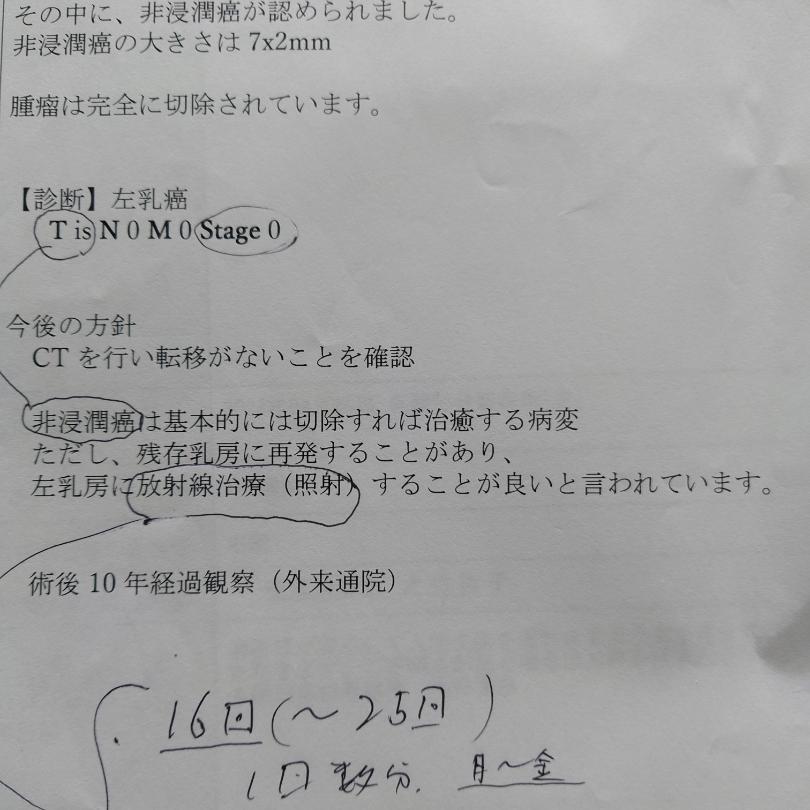 その中に、非浸潤癌が認められました。
非浸潤癌の大きさは 7x2mm
腫瘤は完全に切除されています。
【診断】左乳癌
T is N 0 M 0 Stage 0
今後の方針
CT を行い転移がないことを確認
非浸潤癌は基本的には切除すれば治癒する病変
ただし、残存乳房に再発することがあり、
左乳房に放射線治療（照射）することが良いと言われています。
術後 10 年経過観察（外来通院）
・16回(～25回)
1回数分. 月～金